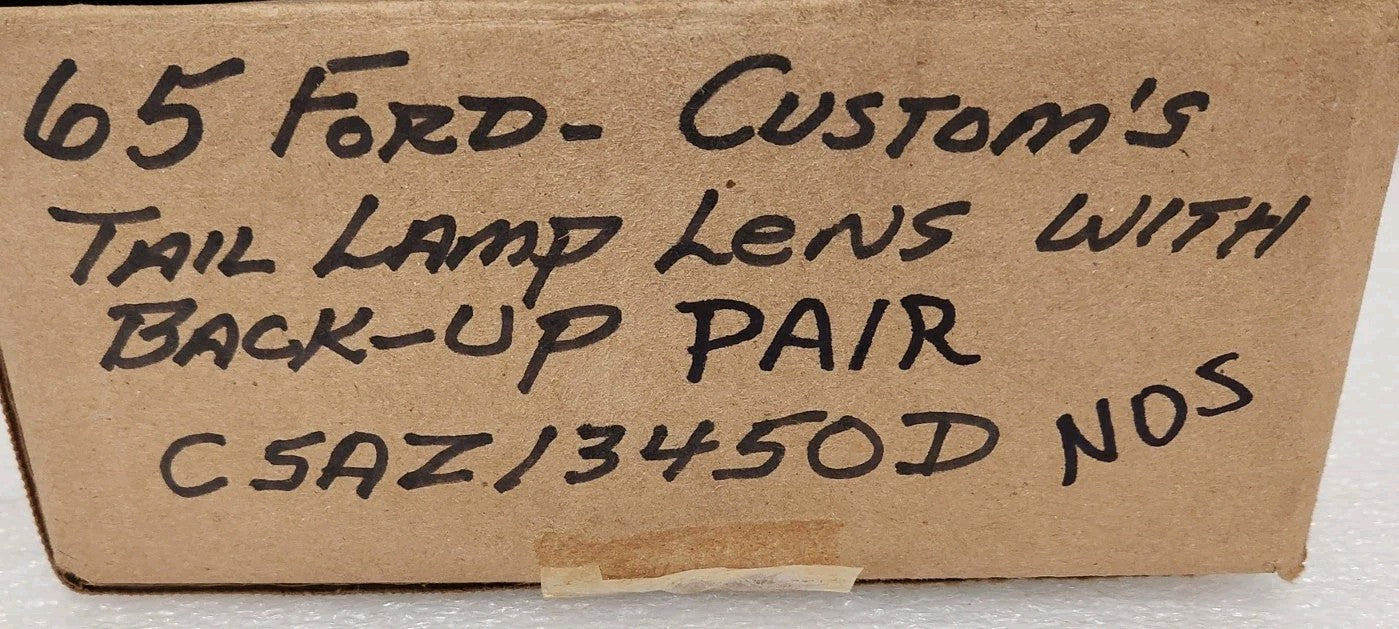 65 FORD- CUSTOM'S
TAIL LAMP LENS WITH
BACK-UP PAIR
C5AZ13450D NOS